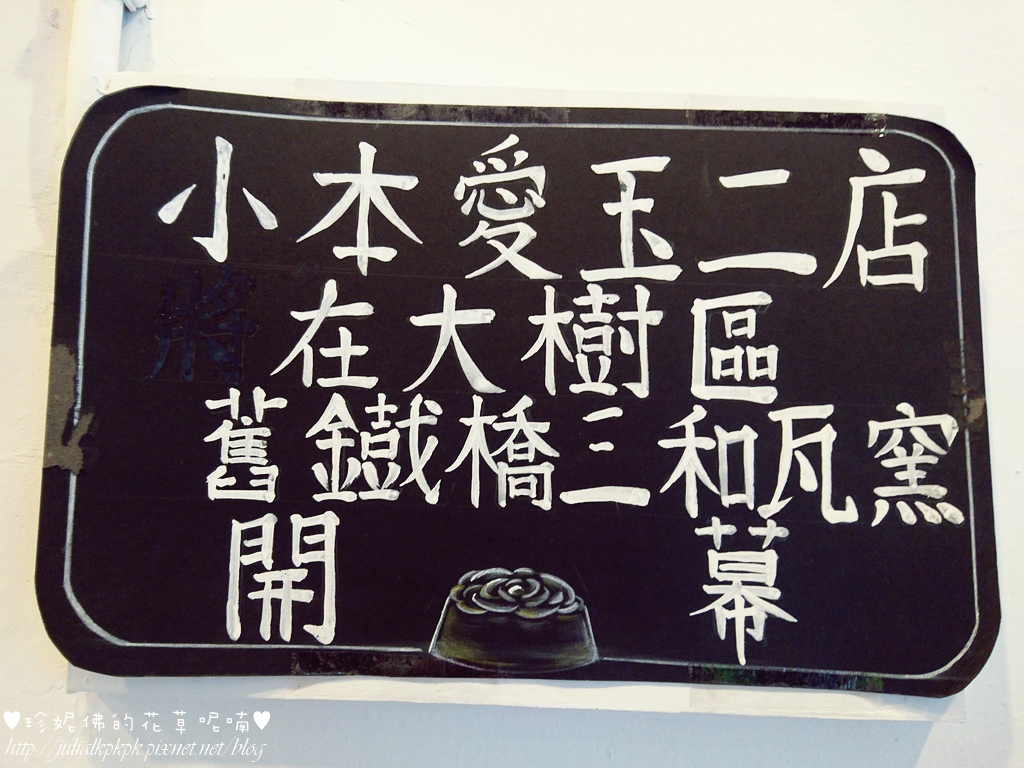 小本愛玉二店
將在大樹區
舊鐵橋三和瓦窯
開幕
♥珍妮佛的花草呢喃♥
http://julialkpkpk.pixnet.net/blog